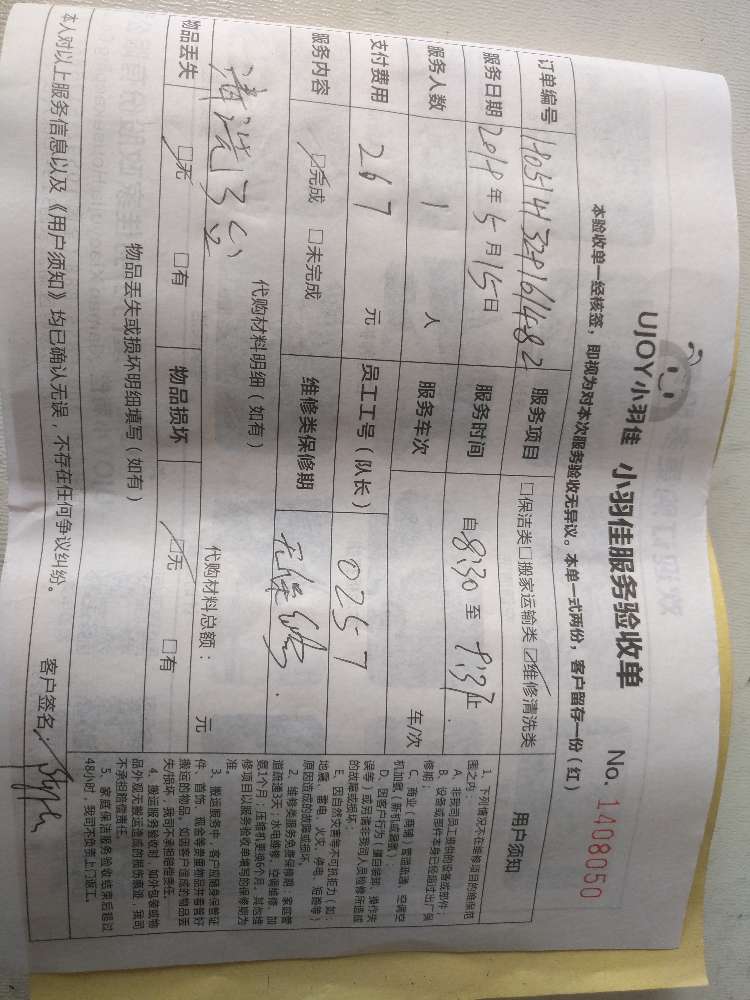 UJOY小羽佳 小羽佳服务验收单 No. 1408050
本验收单一经核签，即视为对本次服务验收无异议。本单一式两份，客户留存一份（红）
订单编号 服务项目 □保洁类□搬家运输类☑维修清洗类
服务日期 2018年5月15日 服务时间 自8:30至9:37止.
服务人数 1人 服务车次 车/次
支付费用 267元 员工工号（队长） 0257
服务内容 ☑完成 □未完成 维修类保修期 无保
代购材料明细（如有） 代购材料总额： 元
清洗3台
物品丢失 ☑无 □有 物品损坏 ☑无 □有
物品丢失或损坏明细填写（如有）
本人对以上服务信息以及《用户须知》均已确认无误，不存在任何争议纠纷。 客户签名：
用户须知
1、下列情况不在维修项目的维保范
围之内：
A、非我司员工提供的设备或部件；
B、设备或部件本身已经超过出厂保
修期；
C、商业（商铺）管道疏通，空调空
机加氨（新机或漏氨）
D、因客户行为（擅自装卸、操作失
误等）或另请非我司人员检修所造成
的故障或损坏
E、因自然灾害等不可抗拒力（如：
地震、雷电、火灾、停电、短路等）
原因造成的故障或损坏。
2、维修类服务免费保修期：家庭管
道疏通3天；水电维修、空调维修、加
氨1个月；压缩机更换6个月。其他维
修项目以服务验收单填写的保修期为
准。
3、搬运服务中，客户应随身保管证
件、首饰、现金等贵重物品并看管好
搬运的物品。如因客户造成的物品丢
失/损坏，我司不承担赔偿责任。
4、搬运服务验收时，如外包装或物
品外观无搬运造成的损伤痕迹，我司
不承担赔偿责任。
5、家庭保洁服务验收结束后超过
48小时，我司不负责上门返工。